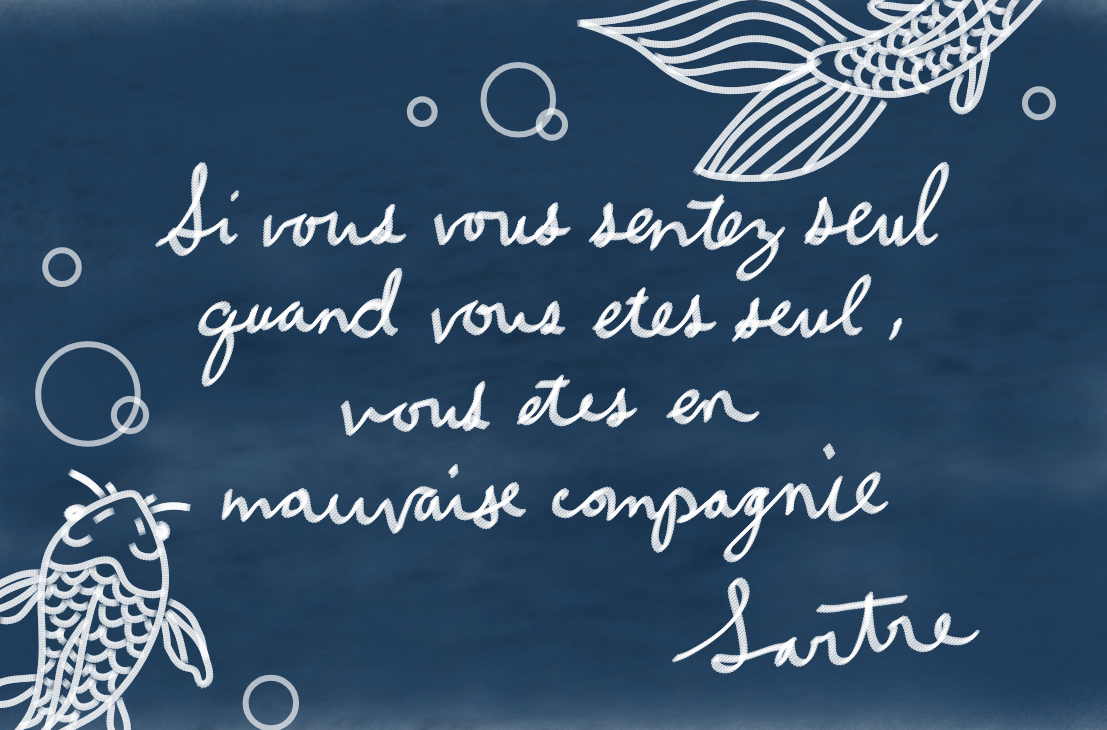 Si vous vous sentez seul
quand vous etes seul ,
vous etes en
mauvaise compagnie
Sartre